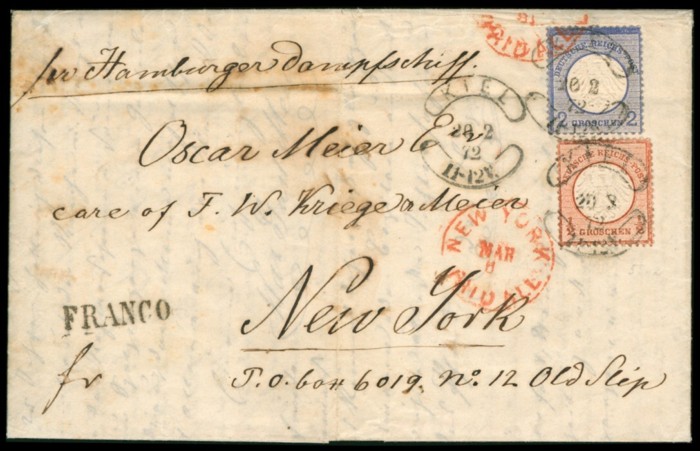 PAID ALL
per Hamburger Dampfschiff.
DEUTSCHE REICHS-POST
2 GROSCHEN 2
KIEL
20 2
72
11-12V.
Oscar Meier Esr
DEUTSCHE REICHS-POST
½ GROSCHEN ½
KIEL
20 2
72
care of F. W. Kriege & Meier
NEW YORK
MAR
8
PAID ALL
New York
FRANCO
fr
P.O. box 6019. No. 12 Old Slip